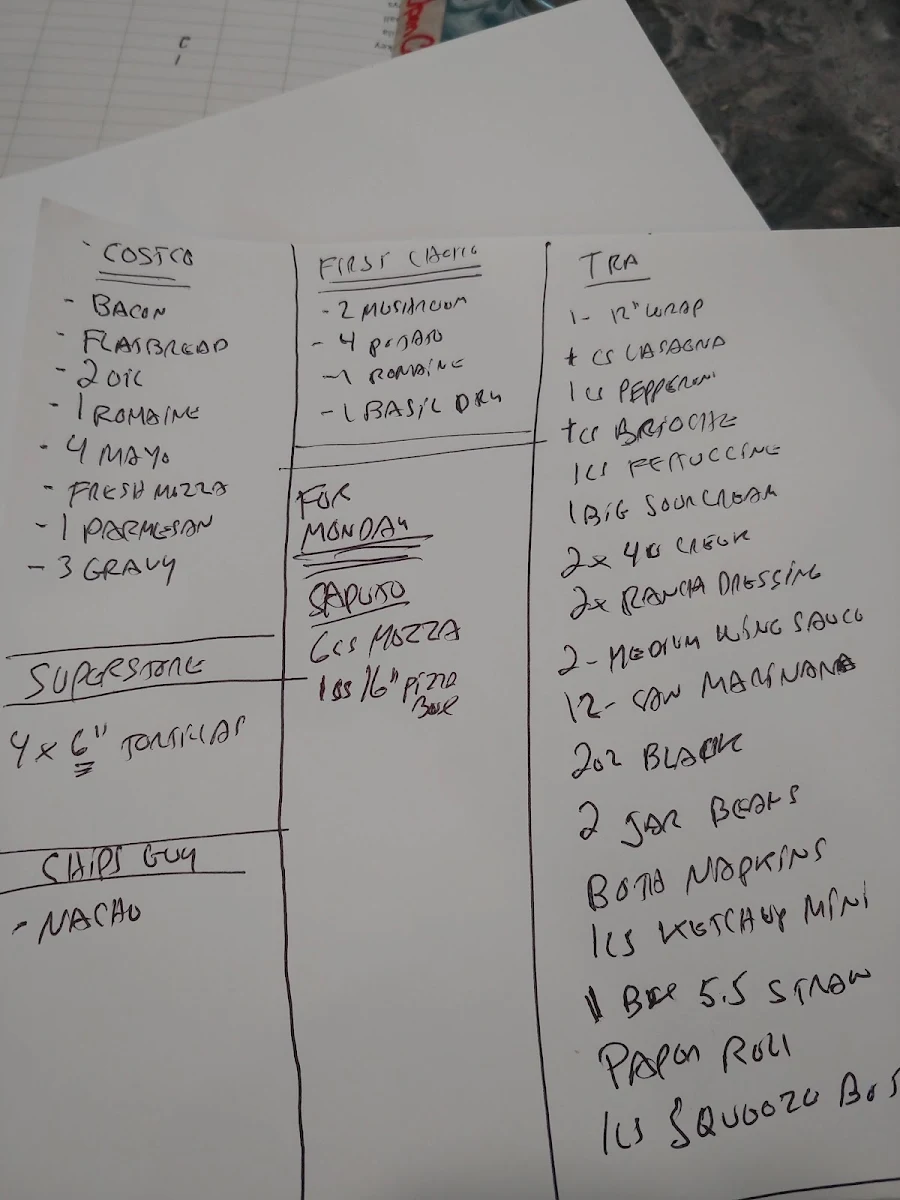 COSTCO
- BACON
- FLATBREAD
- 2 OIL
- 1 ROMAINE
- 4 MAYO
- FRESH MOZZA
- 1 PARMESAN
- 3 GRAVY
SUPERSTORE
4 x 6" TORTILLAS
CHIPS GUY
- NACHO
FIRST
- 2 MUSHROOM
- 4 POTATO
- 1 ROMAINE
- 1 BASIL DRY
FOR
MONDAY
SAPUTO
6cs MOZZA
16" PIZZA
Base
TRA
1- 12" WRAP
cs LASAGNA
1cs PEPPERONI
cs BRIOCHE
1cs FETTUCCINE
1 BIG SOUR CREAM
2x
2x RANCH DRESSING
2- MEDIUM WING SAUCE
12- MARINARA
2oz BLACK
2 JAR
BOTH NAPKINS
1cs KETCHUP MINI
1 5.5 STRAW
PAPER ROLL
1cs SQUEEZE